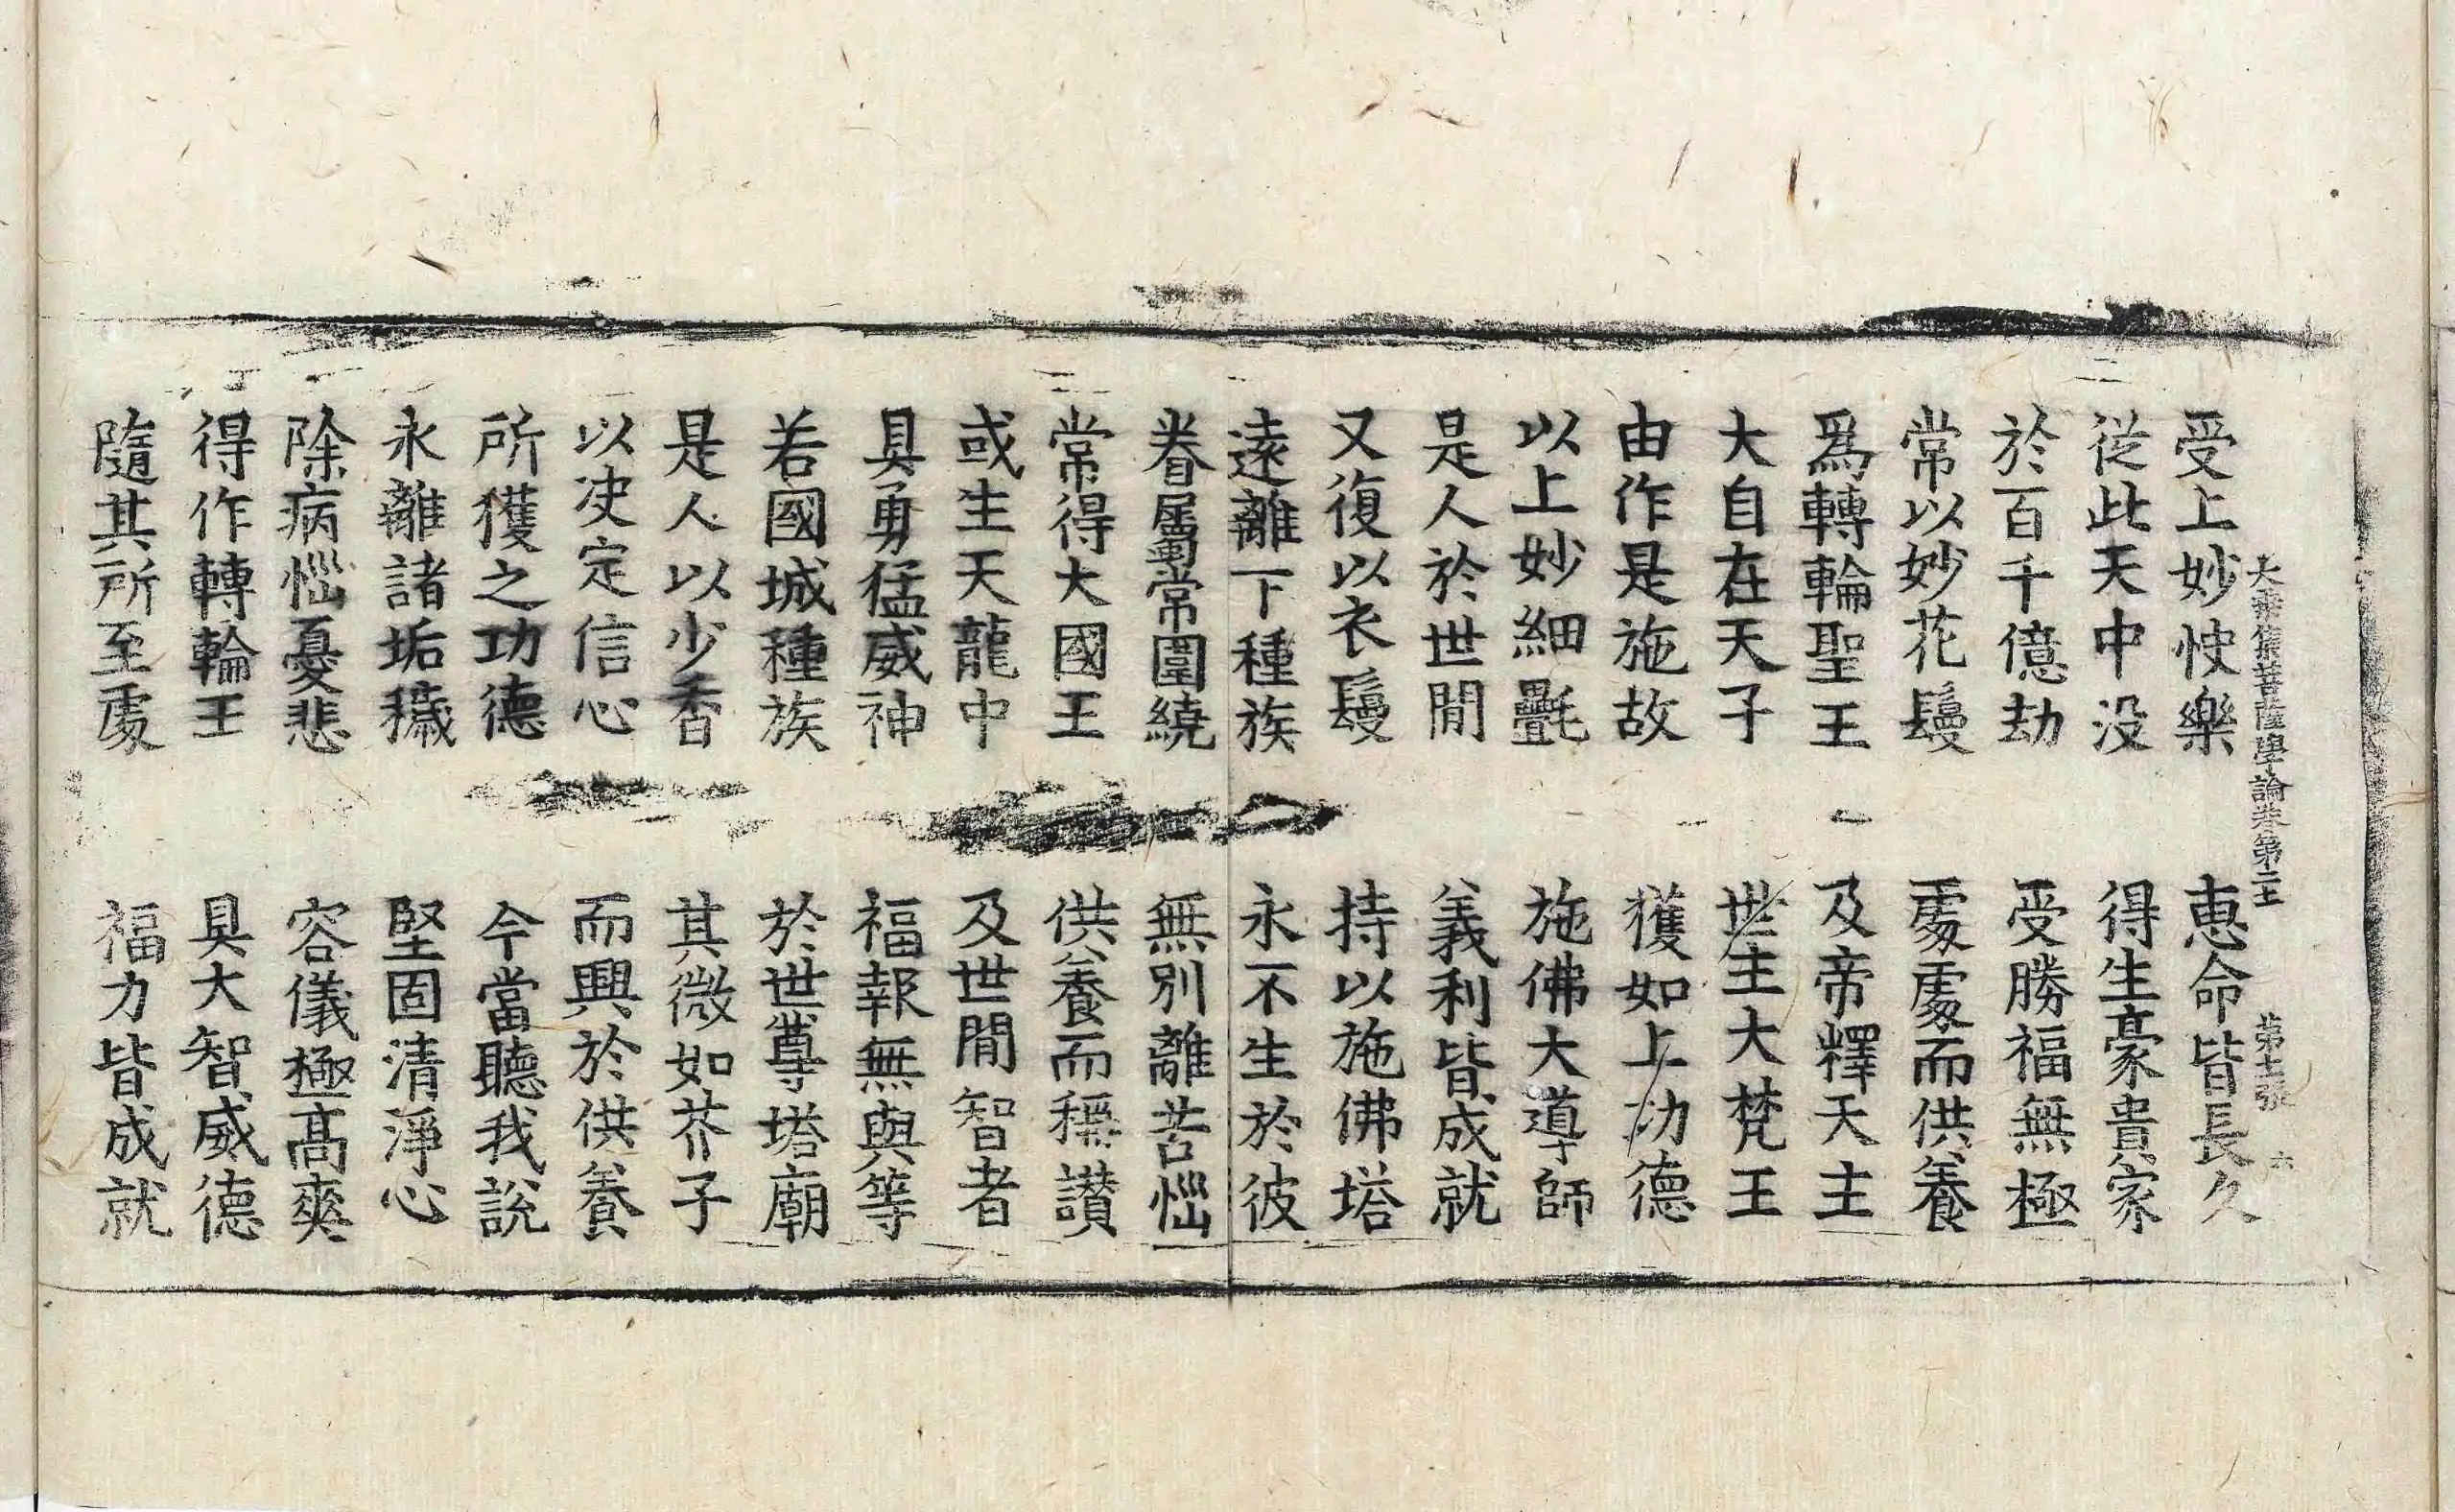 大乘集菩薩學論卷第二 第七張 六
受上妙快樂 恵命皆長久
從此天中没 得生豪貴家
於百千億劫 受勝福無極
常以妙花鬘 處處而供養
爲轉輪聖王 及帝釋天主
大自在天子 世主大梵王
由作是施故 獲如上功德
以上妙細㲲 施佛大導師
是人於世間 義利皆成就
又復以衣鬘 持以施佛塔
遠離下種族 永不生於彼
眷屬常圍繞 無別離苦惱
常得大國王 供養而稱讃
或生天龍中 及世間智者
具勇猛威神 福報無與等
若國城種族 於世尊塔廟
是人以少香 其微如芥子
以决定信心 而興於供養
所獲之功德 今當聽我說
永離諸垢穢 堅固清淨心
除病惱憂悲 容儀極髙爽
得作轉輪王 具大智威德
隨其所至處 福力皆成就